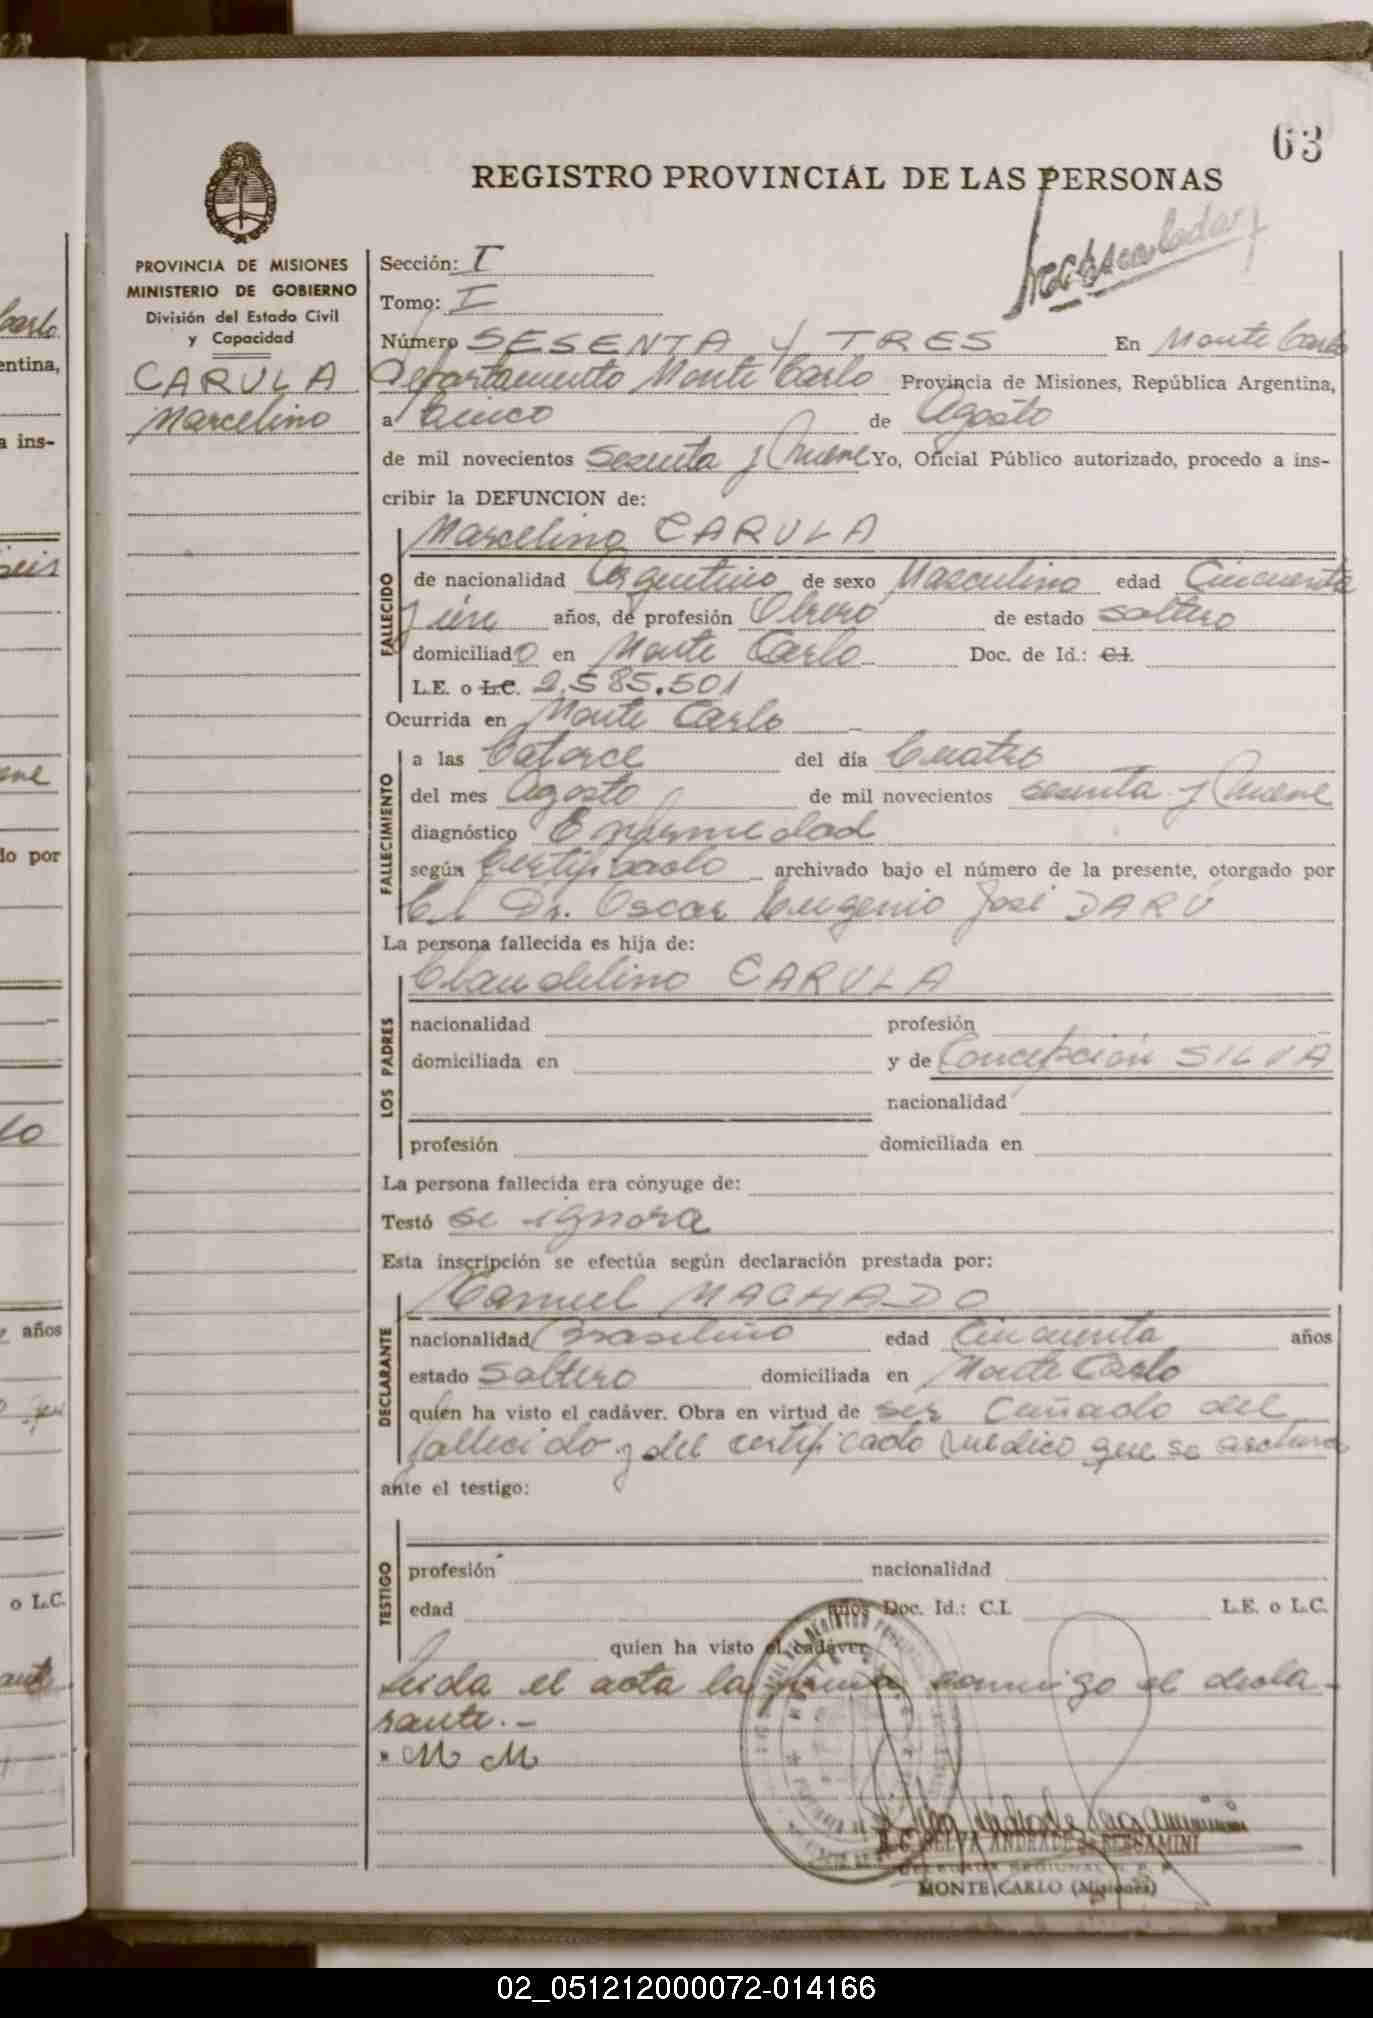 63
REGISTRO PROVINCIAL DE LAS PERSONAS
PROVINCIA DE MISIONES
MINISTERIO DE GOBIERNO
División del Estado Civil
y Capacidad
CARULA
Marcelino
Sección: I
Tomo: I
Número SESENTA Y TRES En Monte Carlo
Departamento Monte Carlo Provincia de Misiones, República Argentina,
a Cinco de Agosto
de mil novecientos sesenta y Nueve Yo, Oficial Público autorizado, procedo a ins-
cribir la DEFUNCION de:
Marcelino CARULA
FALLECIDO
de nacionalidad Argentino de sexo Masculino edad Cincuenta
y un años, de profesión Obrero de estado soltero
domiciliado en Monte Carlo Doc. de Id.: C.I.
L.E. o L.C. 2.585.501
Ocurrida en Monte Carlo
FALLECIMIENTO
a las Catorce del día Cuatro
del mes Agosto de mil novecientos sesenta y Nueve
diagnóstico Enfermedad
según Certificado archivado bajo el número de la presente, otorgado por
El Dr. Oscar Eugenio José DARÚ
La persona fallecida es hija de:
Claudelino CARULA
LOS PADRES
nacionalidad profesión
domiciliada en y de Concepción SILVA
nacionalidad
profesión domiciliada en
La persona fallecida era cónyuge de:
Testó se ignora
Esta inscripción se efectúa según declaración prestada por:
Manuel MACHADO
DECLARANTE
nacionalidad Brasileño edad Cincuenta años
estado Soltero domiciliada en Monte Carlo
quien ha visto el cadáver. Obra en virtud de ser Cuñado del
fallecido y del certificado médico que se archiva
ante el testigo:
TESTIGO
profesión nacionalidad
edad años Doc. Id.: C.I. L.E. o L.C.
quien ha visto el cadáver
Leida el acta la firma conmigo el decla-
rante.-
M M
SELVA ANDRADE de BERGAMINI
MONTE CARLO (Misiones)
Carlo
entina,
a ins-
seis
do por
años
o L.C.
02_051212000072-014166